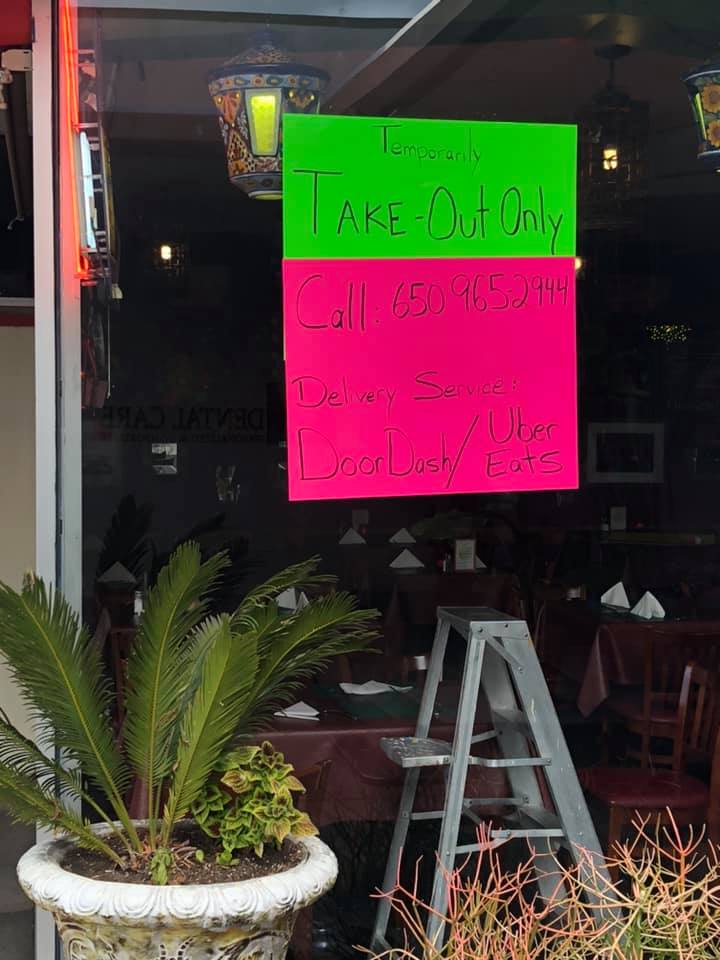 Temporarily
TAKE-Out Only
Call: 650 965-2944
Delivery Service:
DoorDash/ Uber
Eats
DENTAL CARE